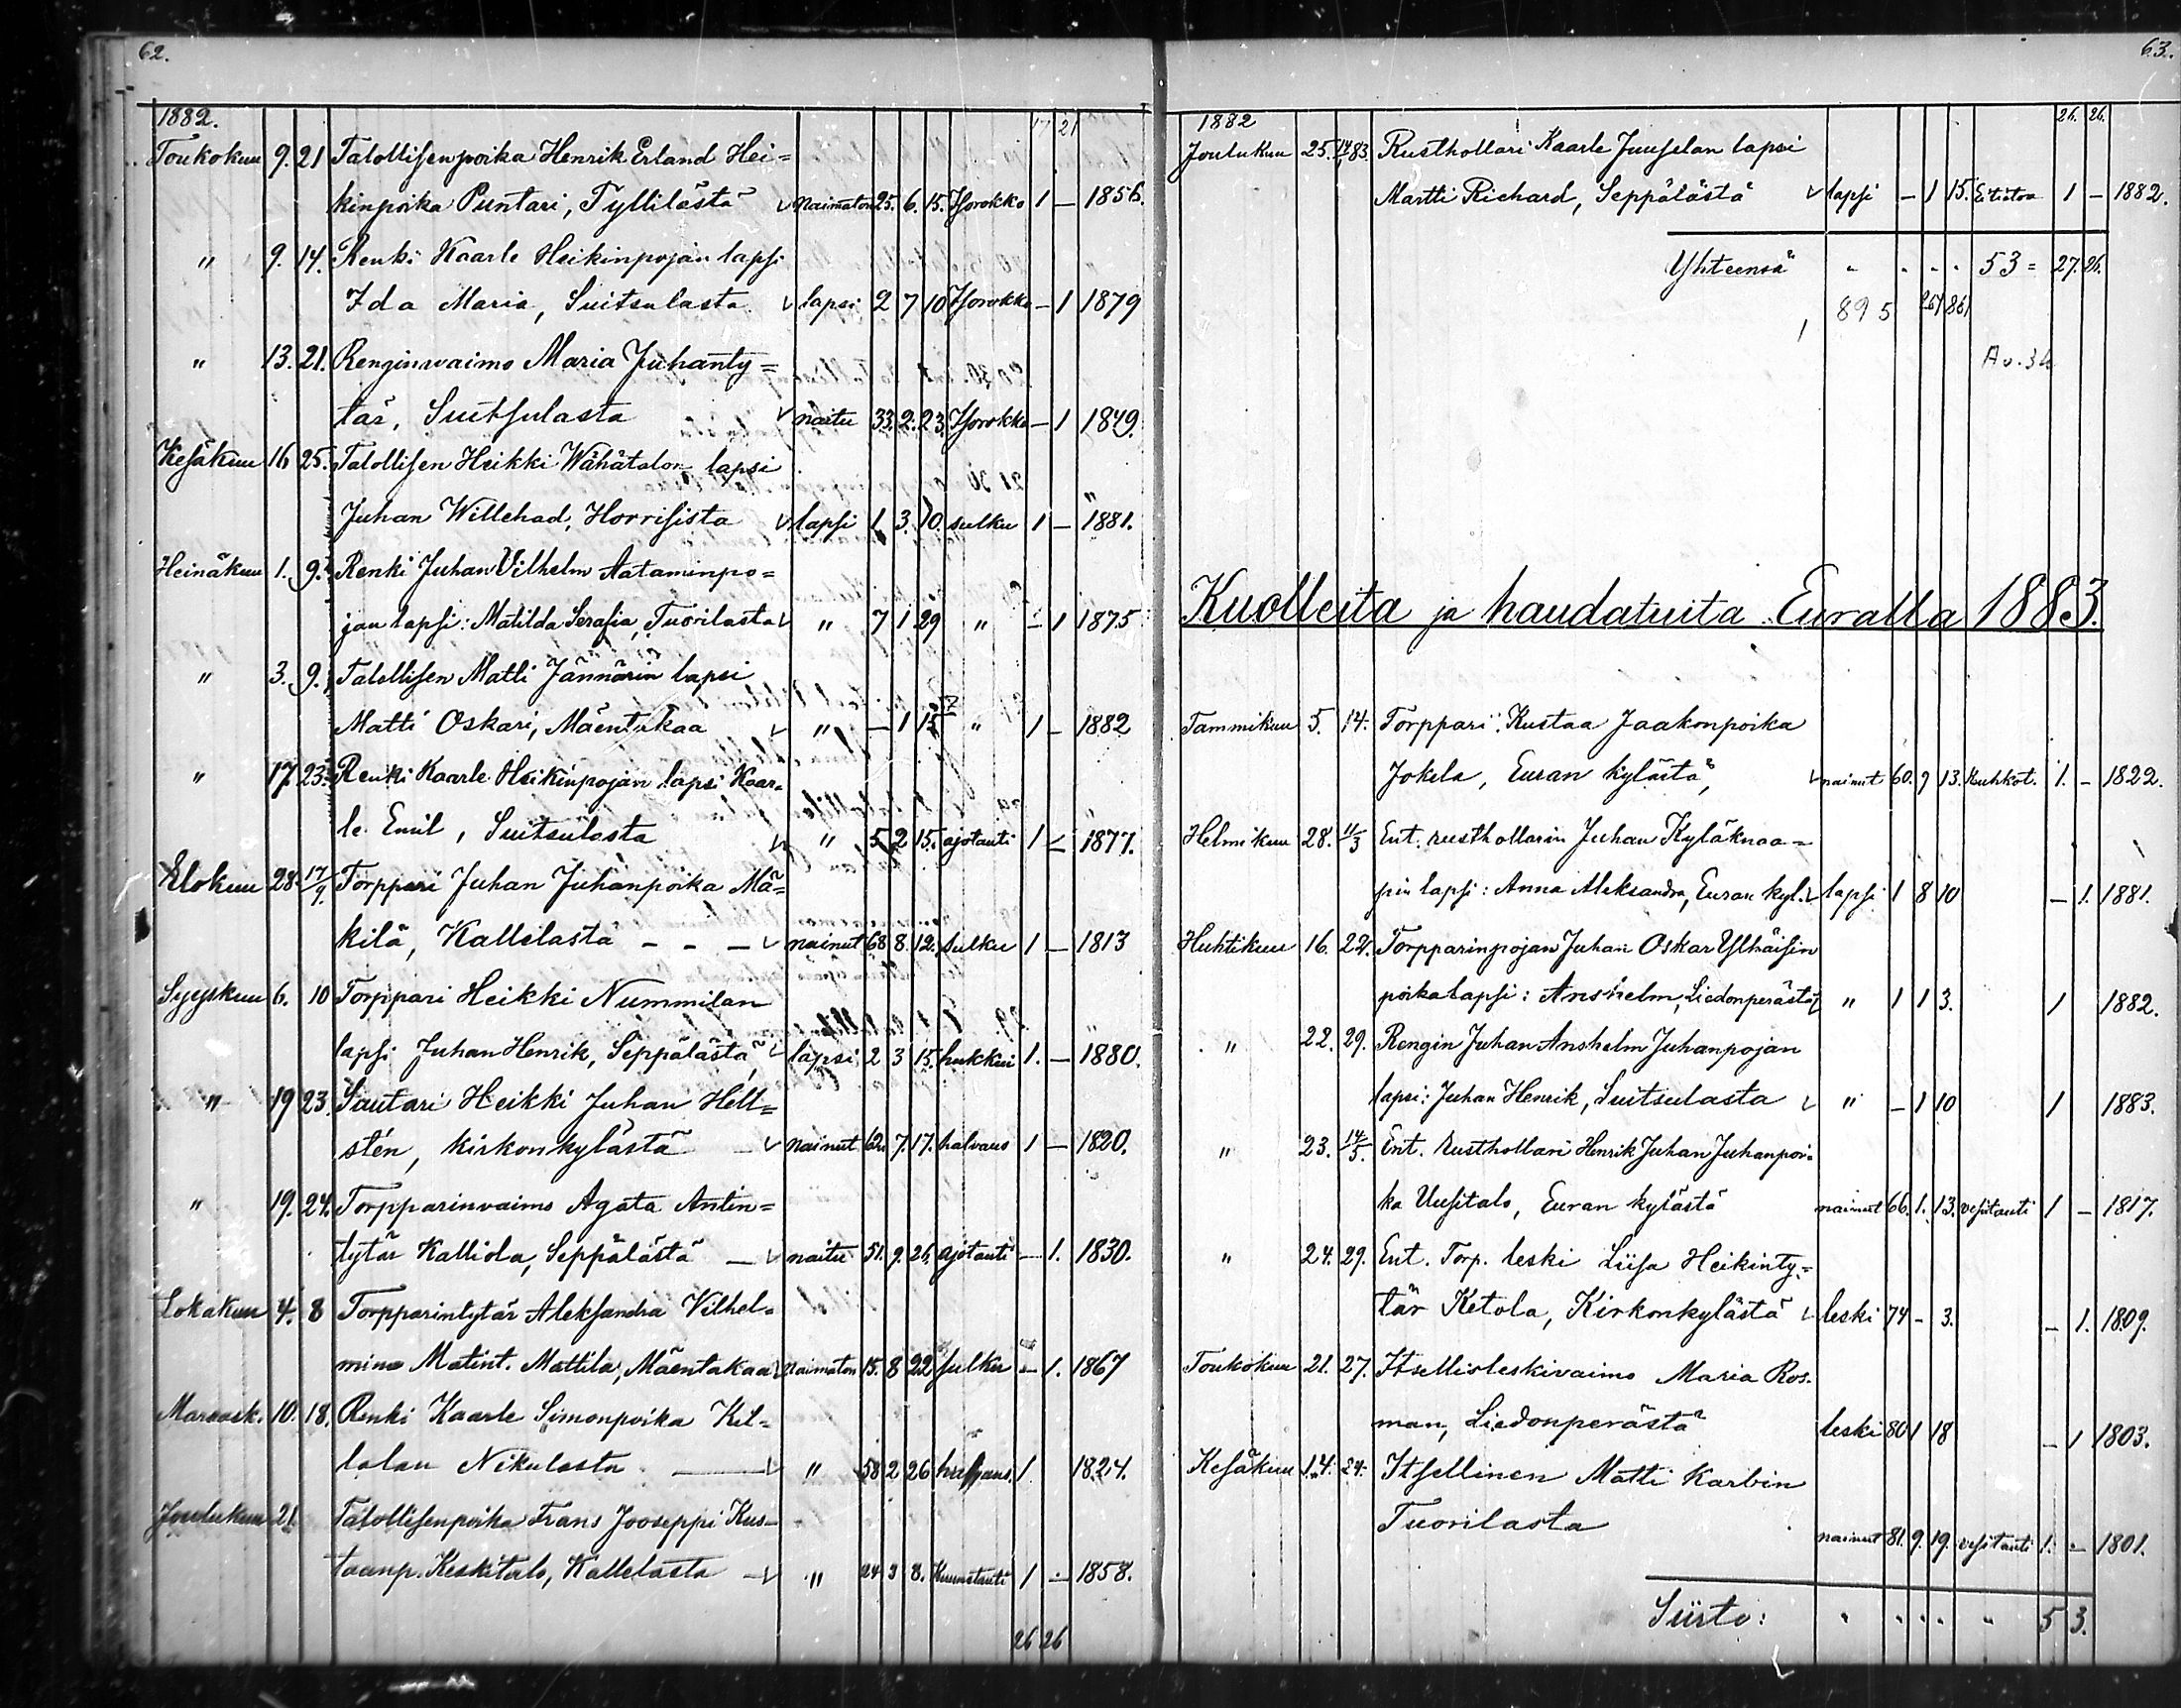 62.
1882. 17 21
Toukokuu 9. 21 Talollisenpoika Henrik Erland Hei=
kinpoika Puntari, Tyllilästä naimaton 25. 6. 15. Isorokko 1 — 1856.
" 9. 14. Renki Kaarle Heikinpojan lapsi
Ida Maria, Suitsulasta lapsi 2 7 10 Isorokko — 1 1879
" 13. 21. Renginwaimo Maria Juhanty=
tär, Suitsulasta naitu 33. 2. 23. Isorokko — 1 1849.
Kesäkuu 16 25. Talollisen Heikki Wähätalon lapsi
Juhan Willehad, Horrisista lapsi 1 3. 10. sulku 1 — 1881.
Heinäkuu 1. 9. Renki Juhan Vilhelm Aataminpo=
jan lapsi: Matilda Serafia, Tuorilasta " 7 1 29 " — 1 1875
" 3. 9. Talollisen Matti Jännärin lapsi
Matti Oskari, Mäentakaa " — 1 15 " 1 — 1882
" 17 23. Renki Kaarle Heikinpojan lapsi Kaar=
le Emil, Suitsulasta " 5 2 15. ajotauti 1 — 1877.
Elokuu 28. 17/9. Torppari Juhan Juhanpoika Mä=
kilä, Kallelasta - - — nainut 68 8. 12. sulku 1 — 1813
Syyskuu 6. 10 Torppari Heikki Nummilan
lapsi Juhan Henrik, Seppälästä, lapsi 2 3 15. hukkui 1. — 1880.
" 19 23. Sautari Heikki Juhan Hell=
stén, kirkonkylästä — nainut 62. 7. 17. halvaus 1 — 1820.
" 19. 24. Torpparinvaimo Agata Antin=
tytär Kalliola, Seppälästä — naitu 51. 9. 26. ajotauti — 1. 1830.
Lokakuu 4. 8 Torpparintytär Aleksandra Vilhel=
mina Matint. Mattila, Mäentakaa naimaton 15. 8 22 sulku — 1. 1867
Marrask. 10. 18. Renki Kaarle Simonpoika Kil=
lalan Nikulasta — " 58 2 26 1. 1824.
Joulukuu 21. Talollisenpoika Frans Jooseppi Kus=
taanp. Keskitalo, Kallelasta — " 24 3 8. Kuumetauti 1 — 1858.
26 26
63.
1882 26. 26.
Joulukuu 25. 83. Rusthollari Kaarle Juuselan lapsi
Martti Richard, Seppälästä lapsi — 1 15. Ei tietoa 1 — 1882.
Yhteensä " " " " 53 = 27. 26.
895 267 861
Av. 34
Kuolleita ja haudatuita Euralla 1883.
Tammikuu 5. 14. Torppari Kustaa Jaakonpoika
Jokela, Euran kylästä, nainut 60. 9 13. Keuhkot. 1. — 1822.
Helmikuu 28. 11/3 Ent. rusthollarin Juhan Kyläknaa=
pin lapsi: Anna Aleksandra, Euran kyl. lapsi 1 8 10 — 1. 1881.
Huhtikuu 16. 22. Torpparinpojan Juhan Oskar Ylhäisin
poikalapsi: Anshelm, Liedonperästä " 1 1 3. 1 1882.
" 22. 29. Rengin Juhan Anshelm Juhanpojan
lapsi: Juhan Henrik, Suitsulasta " — 1 10 1 1883.
" 23. 14/5. Ent. Rusthollari Henrik Juhan Juhanpoi=
ka Uusitalo, Euran kylästä nainut 66. 1. 13. vesitauti 1 — 1817.
" 24. 29. Ent. Torp. leski Liisa Heikinty=
tär Ketola, Kirkonkylästä leski 74 — 3. — 1. 1809.
Toukokuu 21. 27. Itsellisleskivaimo Maria Ros=
man, Liedonperästä leski 80 1 18 — 1 1803.
Kesäkuu 14. 24. Itsellinen Matti Karbin
Tuorilasta nainut 81. 9. 19. vesitauti 1. — 1801.
Siirto: " " " " " 5 3.